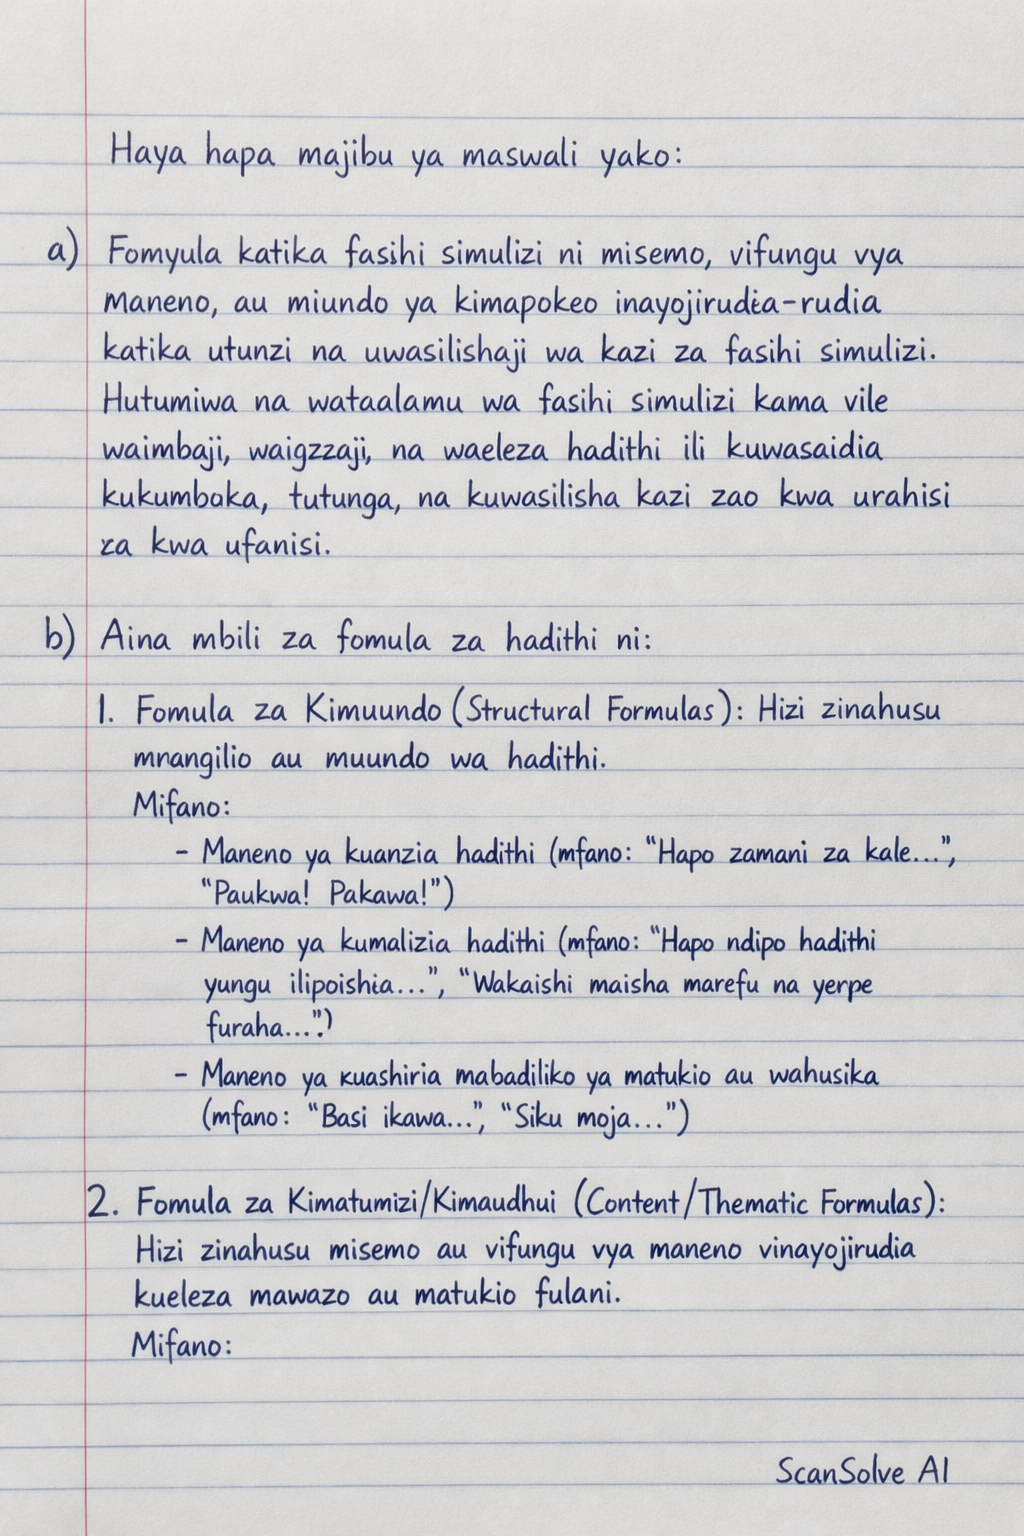 Haya hapa majibu ya maswali yako:
a) Fomyula katika fasihi simulizi ni misemo, vifungu vya
maneno, au miundo ya kimapokeo inayojirudia-rudia
katika utunzi na uwasilishaji wa kazi za fasihi simulizi.
Hutumiwa na wataalamu wa fasihi simulizi kama vile
waimbaji, waigzzaji, na waeleza hadithi ili kuwasaidia
kukumboka, tutunga, na kuwasilisha kazi zao kwa urahisi
za kwa ufanisi.
b) Aina mbili za fomula za hadithi ni:
1. Fomula za Kimuundo (Structural Formulas): Hizi zinahusu
mnangilio au muundo wa hadithi.
Mifano:
- Maneno ya kuanzia hadithi (mfano: "Hapo zamani za kale...",
"Paukwa! Pakawa!")
- Maneno ya kumalizia hadithi (mfano: "Hapo ndipo hadithi
yungu ilipoishia...", "Wakaishi maisha marefu na yerpe
furaha...".)
- Maneno ya kuashiria mabadiliko ya matukio au wahusika
(mfano: "Basi ikawa...", "Siku moja...")
2. Fomula za Kimatumizi/Kimaudhui (Content/Thematic Formulas):
Hizi zinahusu misemo au vifungu vya maneno vinayojirudia
kueleza mawazo au matukio fulani.
Mifano:
ScanSolve AI